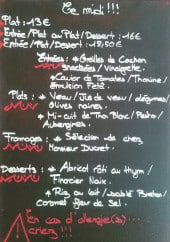 Ce midi!!!
Plat: 13€
Entrée/Plat ou Plat/Dessert: 16€
Entrée/Plat/Dessert: 19,50€
Entrées: * Oreilles de Cochon
snackées/Vinaigrette
* Caviar de Tomates/Thoïonade/
émulsion Feta
Plats: * Veau/Jus de veau/légumes/
Olives noires
* Mi-cuit de Thon Blanc/Pedro/
Aubergines
Fromages: * Sélection de chez
Monsieur Ducret
Desserts: * Abricot rôti au thym/
Financier Noix
* Riz au lait/Sablé Breton/
caramel fleur de Sel
En cas d'allergie(s)...
criez!!!